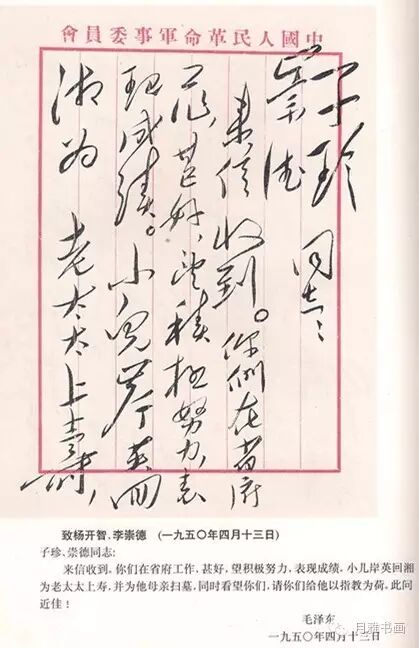 中國人民革命軍事委員會
子珍
崇德 同志:
来信收到。你們在省府
工作,甚好,望積極努力,表
現成績。小兒岸英回
湘为老太太上壽,
致杨开智、李崇德 (一九五〇年四月十三日)
子珍、崇德同志:
来信收到。你们在省府工作,甚好,望积极努力,表现成绩。小儿岸英回湘
为老太太上寿,并为他母亲扫墓,同时看望你们,请你们给他以指教为荷。此问
近佳!
毛泽东
一九五〇年四月十三日
月雅书画